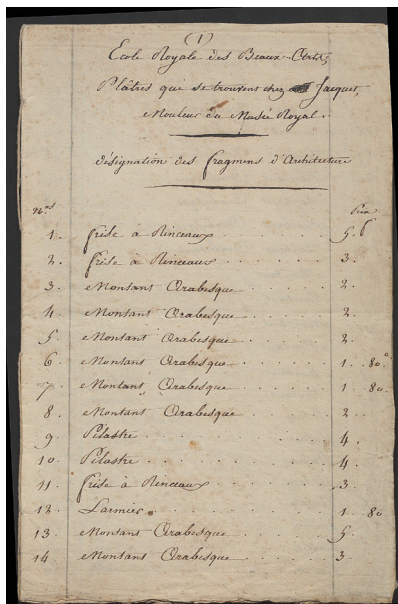 (1)
Ecole Royale des Beaux-Arts,
Plâtres qui se trouvent chez Jacquet,
Mouleur du Musée Royal.
désignation des fragmens d'Architecture
Nos Prix
1. frise à Rinceaux 5. f
2. frise à Rinceaux 3.
3. Montant Arabesque 2.
4 Montant Arabesque 2.
5. Montant Arabesque 2
6 Montant Arabesque 1. 80 c
7. Montant Arabesque 1. 80.
8. Montant Arabesque 2
9 Pilastre 4.
10. Pilastre 4.
11. frise à Rinceaux 3.
12. Larmier 1. 80
13 Montant Arabesque 5.
14 Montant Arabesque 3.